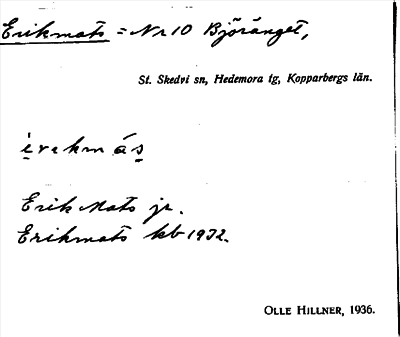 Erikmats = Nr 10 Björänget,
St. Skedvi sn, Hedemora tg, Kopparbergs län.
Erik Mats jr.
Erikmats kb 1932.
OLLE HILLNER, 1936.